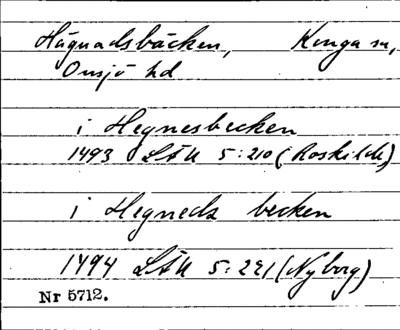 Hägnadsbäcken, Konga sn,
Onsjö hd
i Hegnesbecken
1493 LÄU 5:210 (Roskilde)
i Hegneds becken
1494 LÄU 5:221 (Nyborg)
Nr 5712.